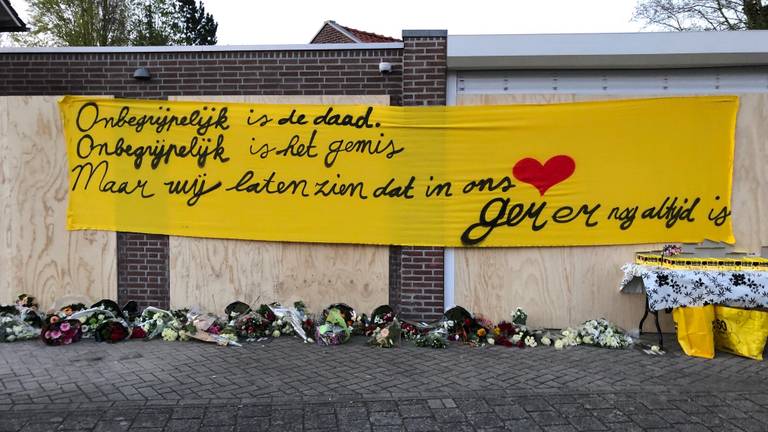 Onbegrijpelijk is de daad.
Onbegrijpelijk is het gemis
Maar wij laten zien dat in ons
ger er nog altijd is